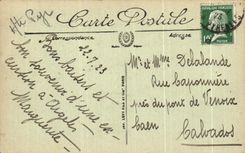 Carte Postale
Correspondance
Adresse
22.7.23
Bons baisers et
bon souvenir d'une ex-
cursion à Argelès
Marguerite
Mr et Mme Delalande
Rue Caponnière
près du pont de Venoix
Caen
Calvados